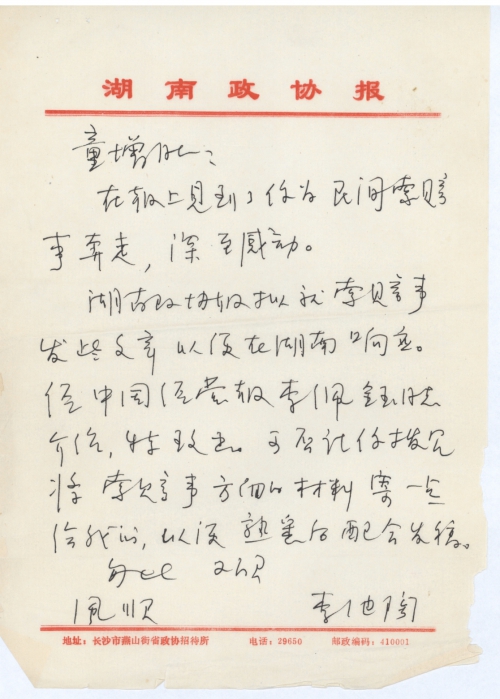 湖南政协报
童增同志：
在报上见到了你为民间索赔
事奔走，深受感动。
湖南政协报拟就索赔事
发些文章以便在湖南响应。
经中国经营报李佩钰同志
介绍，特致书。可否请你拨冗
将索赔事方面的材料寄一些
给我们，以便熟悉后配合发稿。
专此 又祝
风顺 李池陶
地址：长沙市燕山街省政协招待所 电话：29650 邮政编码：410001